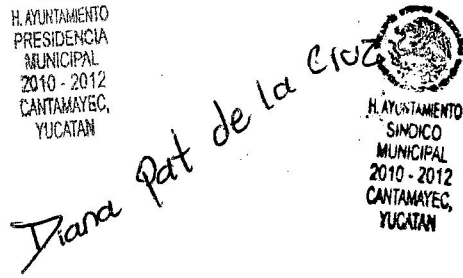 H. AYUNTAMIENTO
PRESIDENCIA
MUNICIPAL
2010 - 2012
CANTAMAYEC,
YUCATAN
Diana Pat de la Cruz
H. AYUNTAMIENTO
SINDICO
MUNICIPAL
2010 - 2012
CANTAMAYEC,
YUCATAN